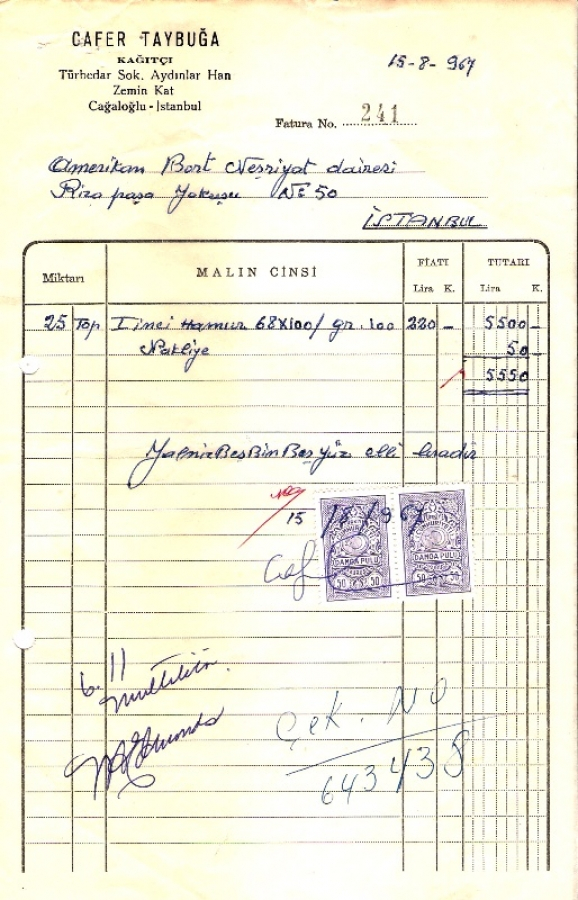 CAFER TAYBUĞA
KAĞITÇI
Türbedar Sok. Aydınlar Han
Zemin Kat
Cağaloğlu - İstanbul
15-8-967
Fatura No. 241
Amerikan Bort Neşriyat dairesi
Rıza paşa Yokuşu No 50
İSTANBUL
Miktarı MALIN CİNSİ FİATI TUTARI
Lira K. Lira K.
25 Top I inci Hamur 68x100/ gr. 100 220 - 5500 -
Nakliye 50 -
5550
Yalnız Beş Bin Beş Yüz elli liradır
15/8/967
DAMGA PULU DAMGA PULU
50 50 50 50
6.11
multilith
Çek. NO
643438